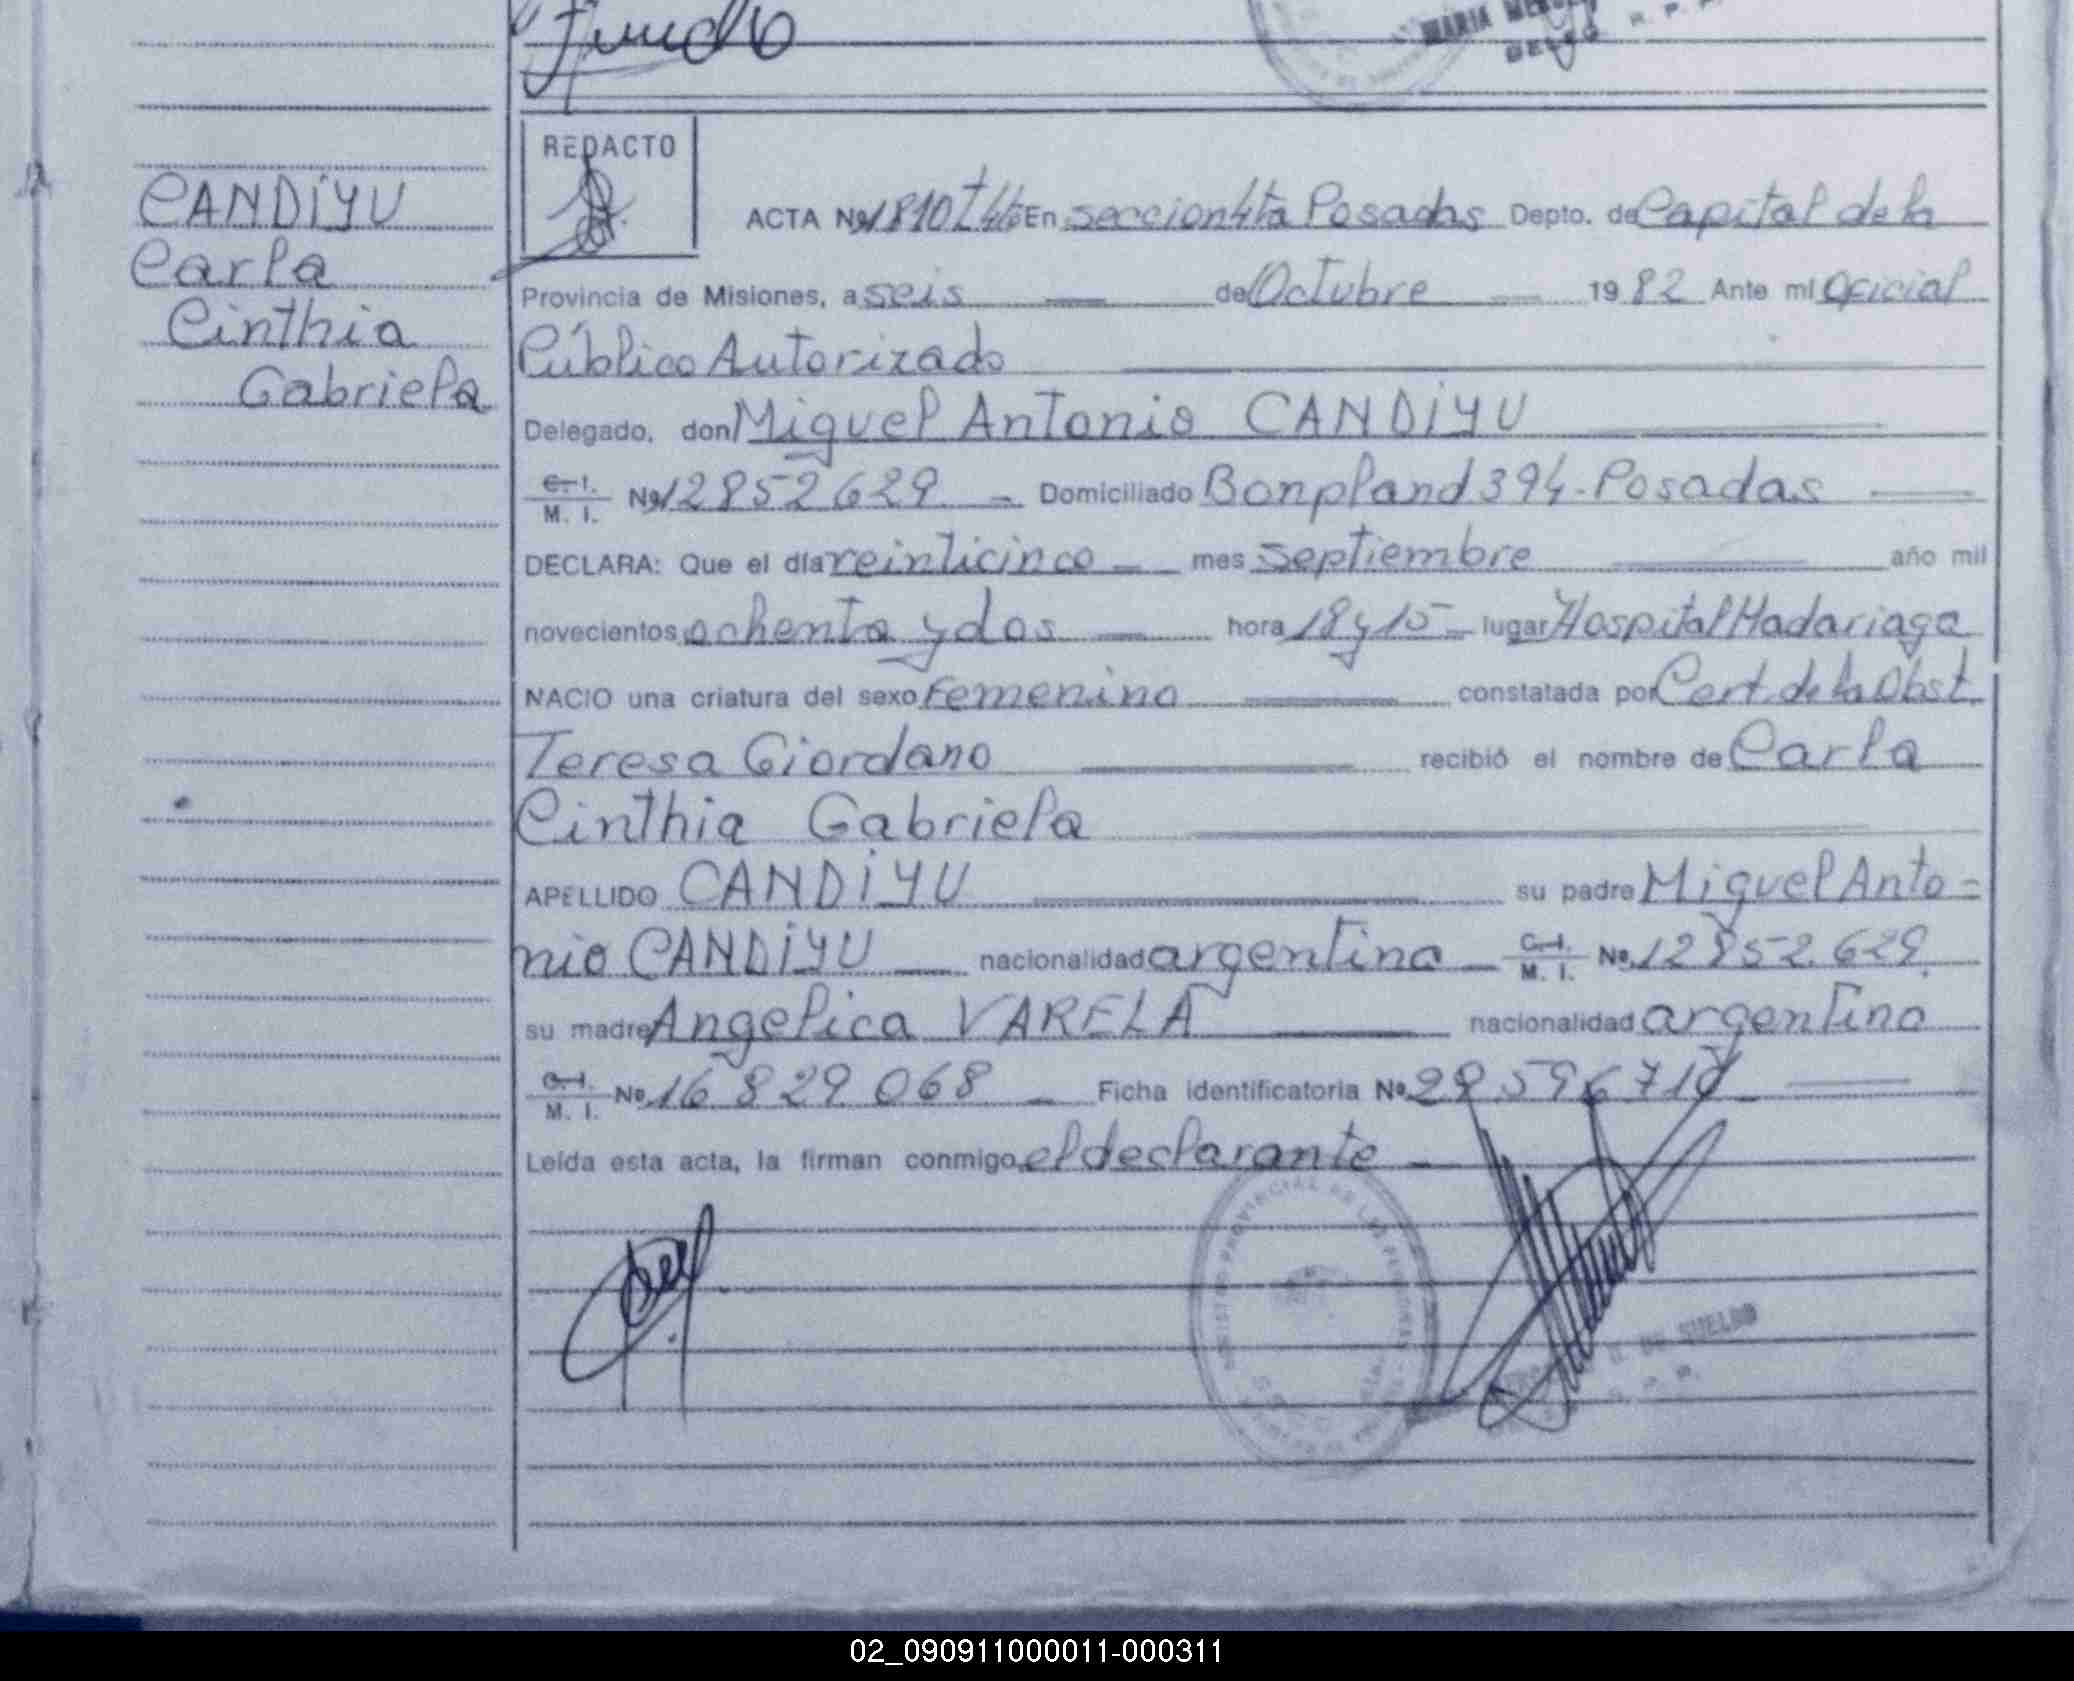 MARIA
R. P. P.
REDACTO
CANDIYU
Carla
Cinthia
Gabriela
ACTA Nº 1810 Tº 4to En seccion 4ta Posadas Depto. de Capital de la
Provincia de Misiones, a seis de Octubre 19 82 Ante mi Oficial
Público Autorizado
Delegado, don Miguel Antonio CANDIYU
C. I.
M. I. Nº 12852629 Domiciliado Bonpland 394 - Posadas
DECLARA: Que el día veinticinco mes septiembre año mil
novecientos ochenta y dos hora 18 y 15 lugar Hospital Madariaga
NACIO una criatura del sexo Femenino constatada por Cert. de la Obst.
Teresa Giordano recibió el nombre de Carla
Cinthia Gabriela
APELLIDO CANDIYU su padre Miguel Anto=
nio CANDIYU nacionalidad argentina C. I. M. I. Nº 12852.629
su madre Angelica VARELA nacionalidad argentina
C. I.
M. I. Nº 16 829 068 Ficha identificatoria Nº
Leída esta acta, la firman conmigo, el declarante
DE SUELDO
02_090911000011-000311